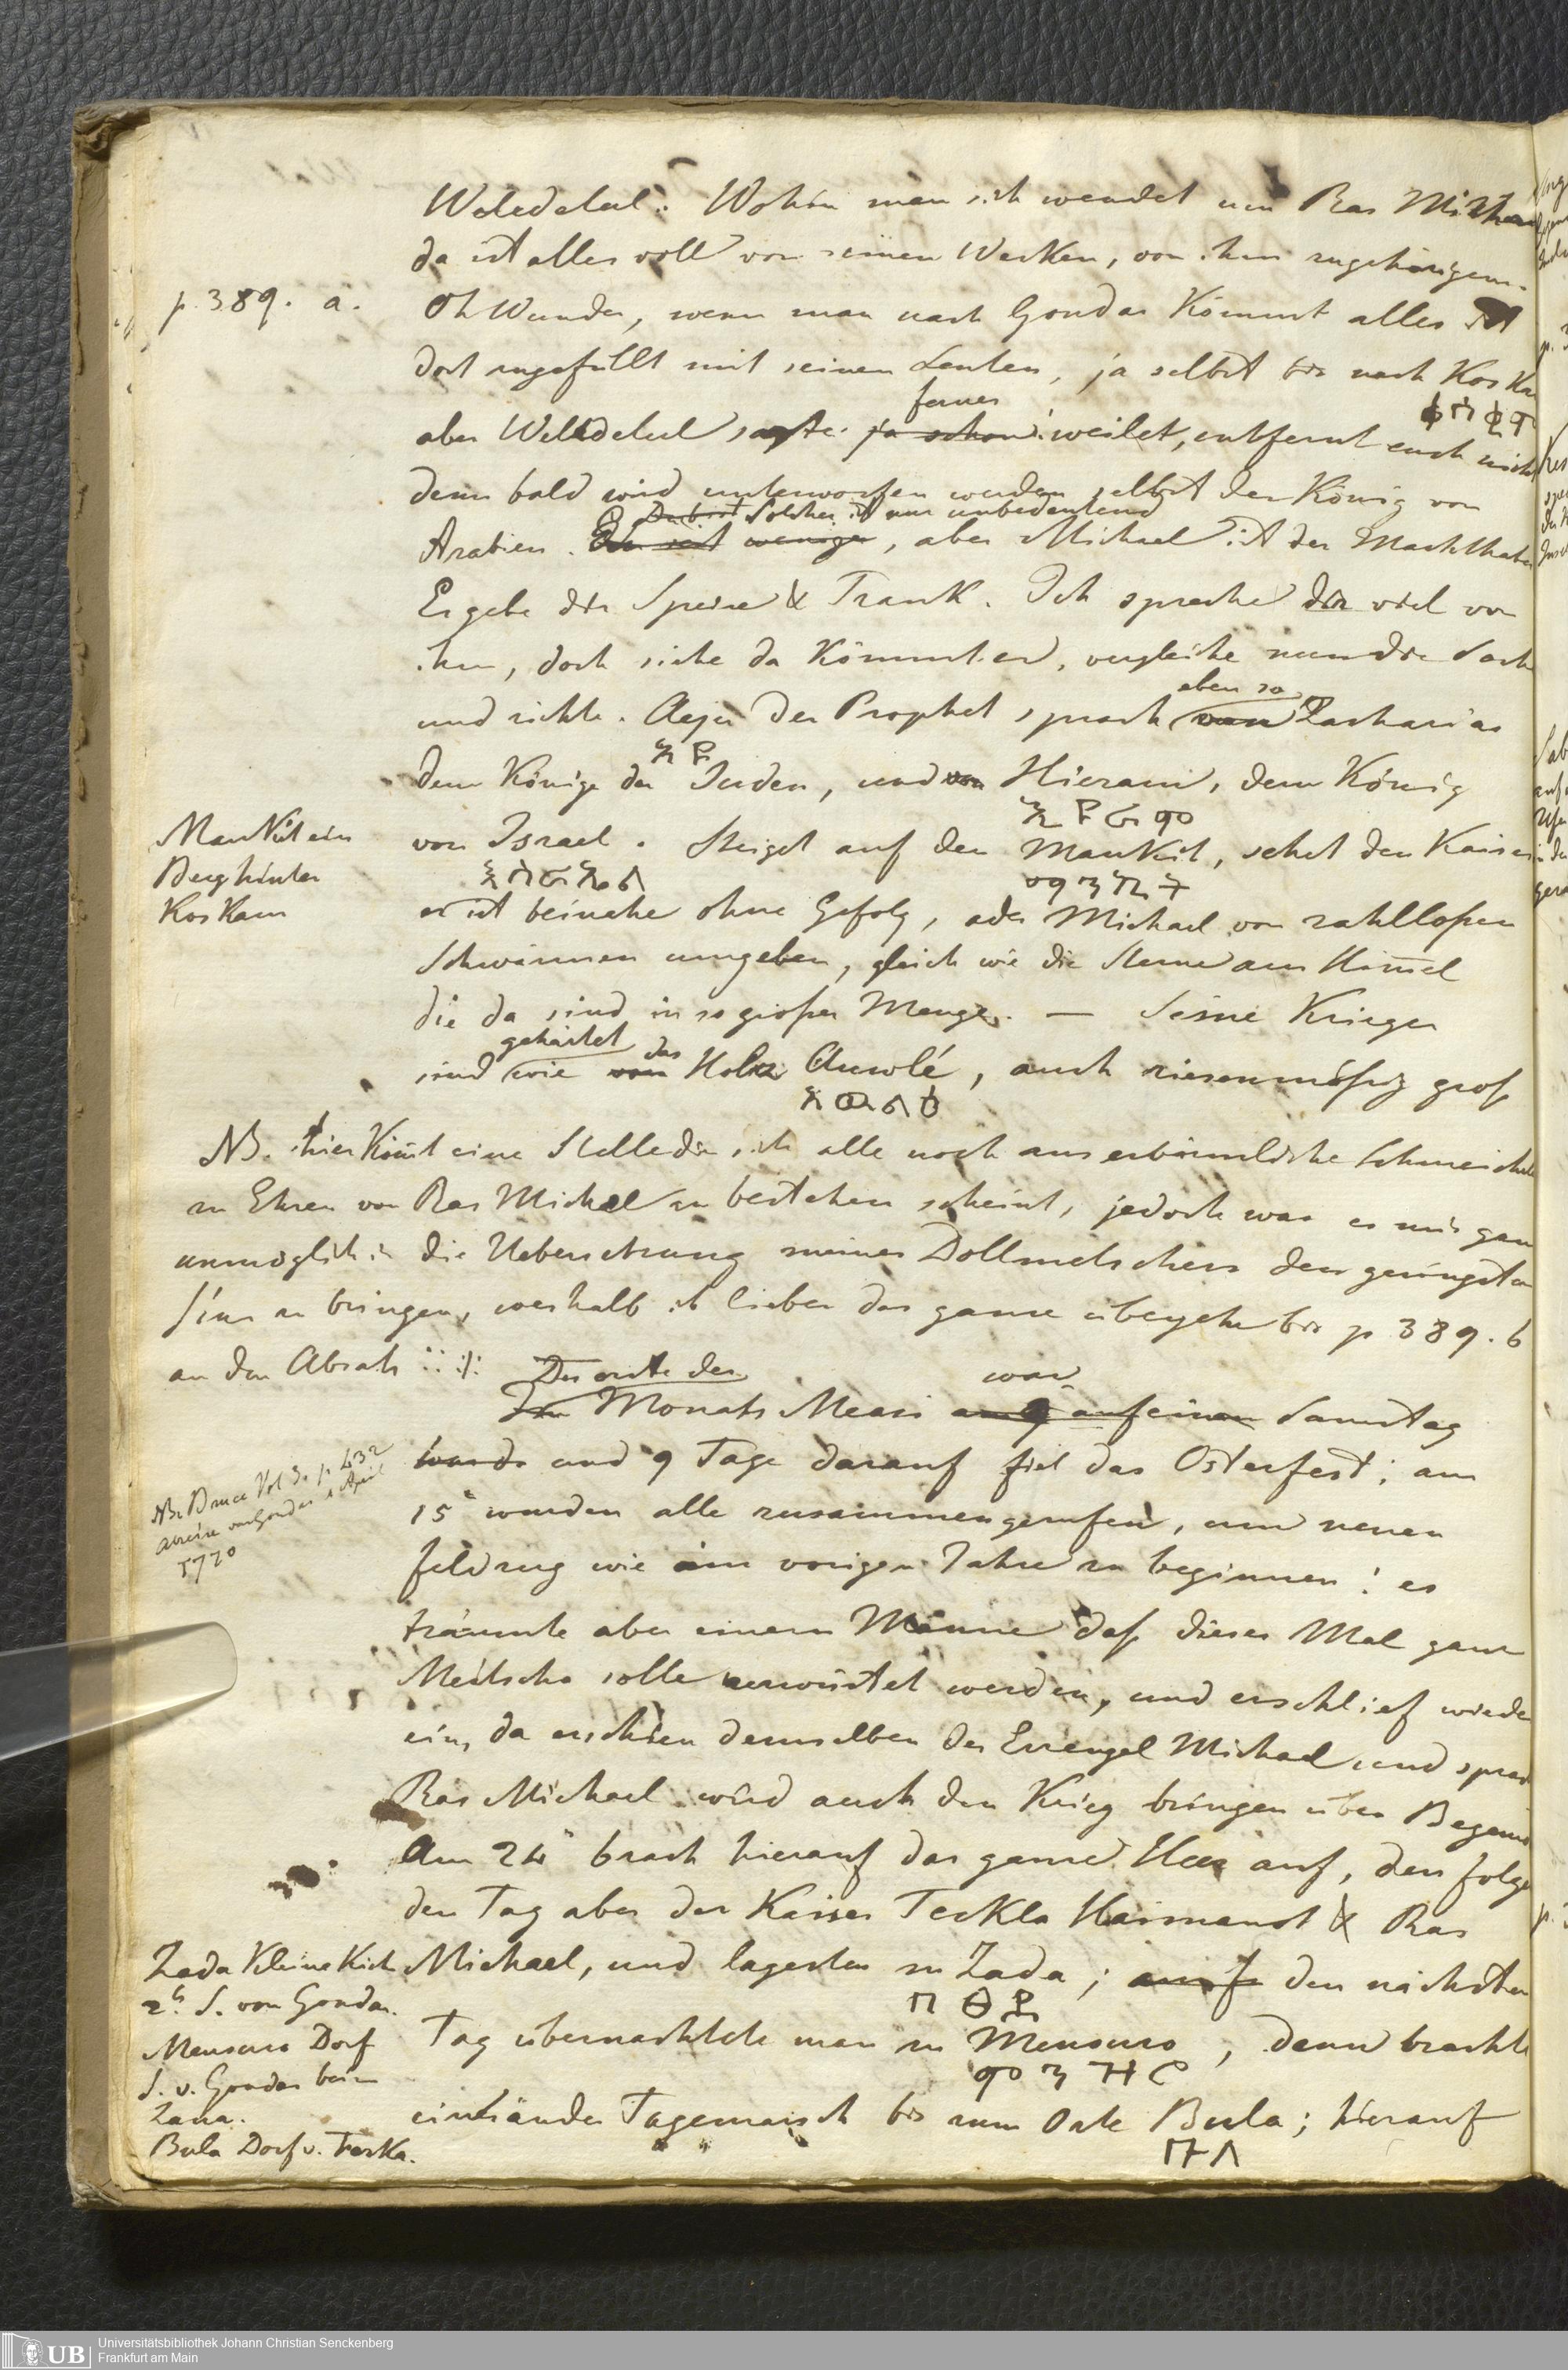 Weledeleul: Wohin man sich wendet um Ras Michael
da ist alles voll von seinen Werken, von ihm zugehörigem.
p. 389. a.
Oh Wunder, wenn man nach Gondar kömmt alles ist
dort angefüllt mit seinen Leuten, ja selbst bis nach Koskam
ferner
aber Weledeleul sagte: ja schon weilet, entfernt euch nicht
denn bald wird unterworfen werden selbst der König von
Du bist Solcher ist nur unbedeutend
Arabien. Du seit weniger, aber Michael ist der Machthaber
Er gebe dir Speise & Trank. Ich spreche dir viel von
ihm, doch siehe da kömmt er, vergleiche nun die Sache
eben so
und richte. Aeja der Prophet sprach von Zacharias
dem Könige der Juden, und von Hieram, dem König
አ ያ
ኢ ያ ራ ም
Mankit ein
Berg hinter
Koskam
von Israel. Steiget auf den Mankit, sehet den Kaiser
እ ስ ራ ኤ ል
መ ን ኪ ት
er ist beinahe ohne Gefolg, oder Michael von zahllosen
Schwärmen umgeben, gleich wie die Sterne am Himel
die da sind in so großer Menge. — Seine Krieger
gehärtet
das
sind wie vom Holz Auolé, auch riesenmäßig groß
NB. hier kömt eine Stelle die sich alle noch aus erbärmliche Schmeichelei
zu Ehren von Ras Michael zu bestehen scheint, jedoch war es mir ganz
unmöglich in die Uebersetzung meines Dollmetschers den geringsten
Sinn zu bringen, weshalb ich lieber das ganze übergehe bis p 389. b
an den Absatz
Der erste des
war
Im Monats Measi am 9 auf einen Samstag
wurde und 9 Tage darauf fiel das Osterfest; am
NB. Bruce Vol 3. p. 432
abreise von Gondar 1 April
1770
15t wurden alle zusammengerufen, um neuen
Feldzug wie im vorigen Jahre zu beginnen: es
träumte aber einem Manne daß dieses Mal ganz
Meitscha solle verwüstet werden, und er schlief wieder
ein, da erschien demselben der Erzengel Michael und sprach
Ras Michael wird auch den Krieg bringen über Begemd
Am 24t brach hierauf das ganze Heer auf, den folgen
den Tag aber der Kaiser Teckla Haimanot & Ras
Zada Kleine Kirche
2h S. von Gondar.
Mensuro Dorf
S. v. Gondar beim
Zana.
Bula Dorf v. Fierka.
Michael, und lagerten zu Zada; auf den nächsten
Tag übernachtete man zu Mensuro, dann brachte
ም ን ዝ ሮ
ein Tagemarsch bis zum Orte Bula; hierauf
ቡ ላ
Universitätsbibliothek Johann Christian Senckenberg
Frankfurt am Main
UB